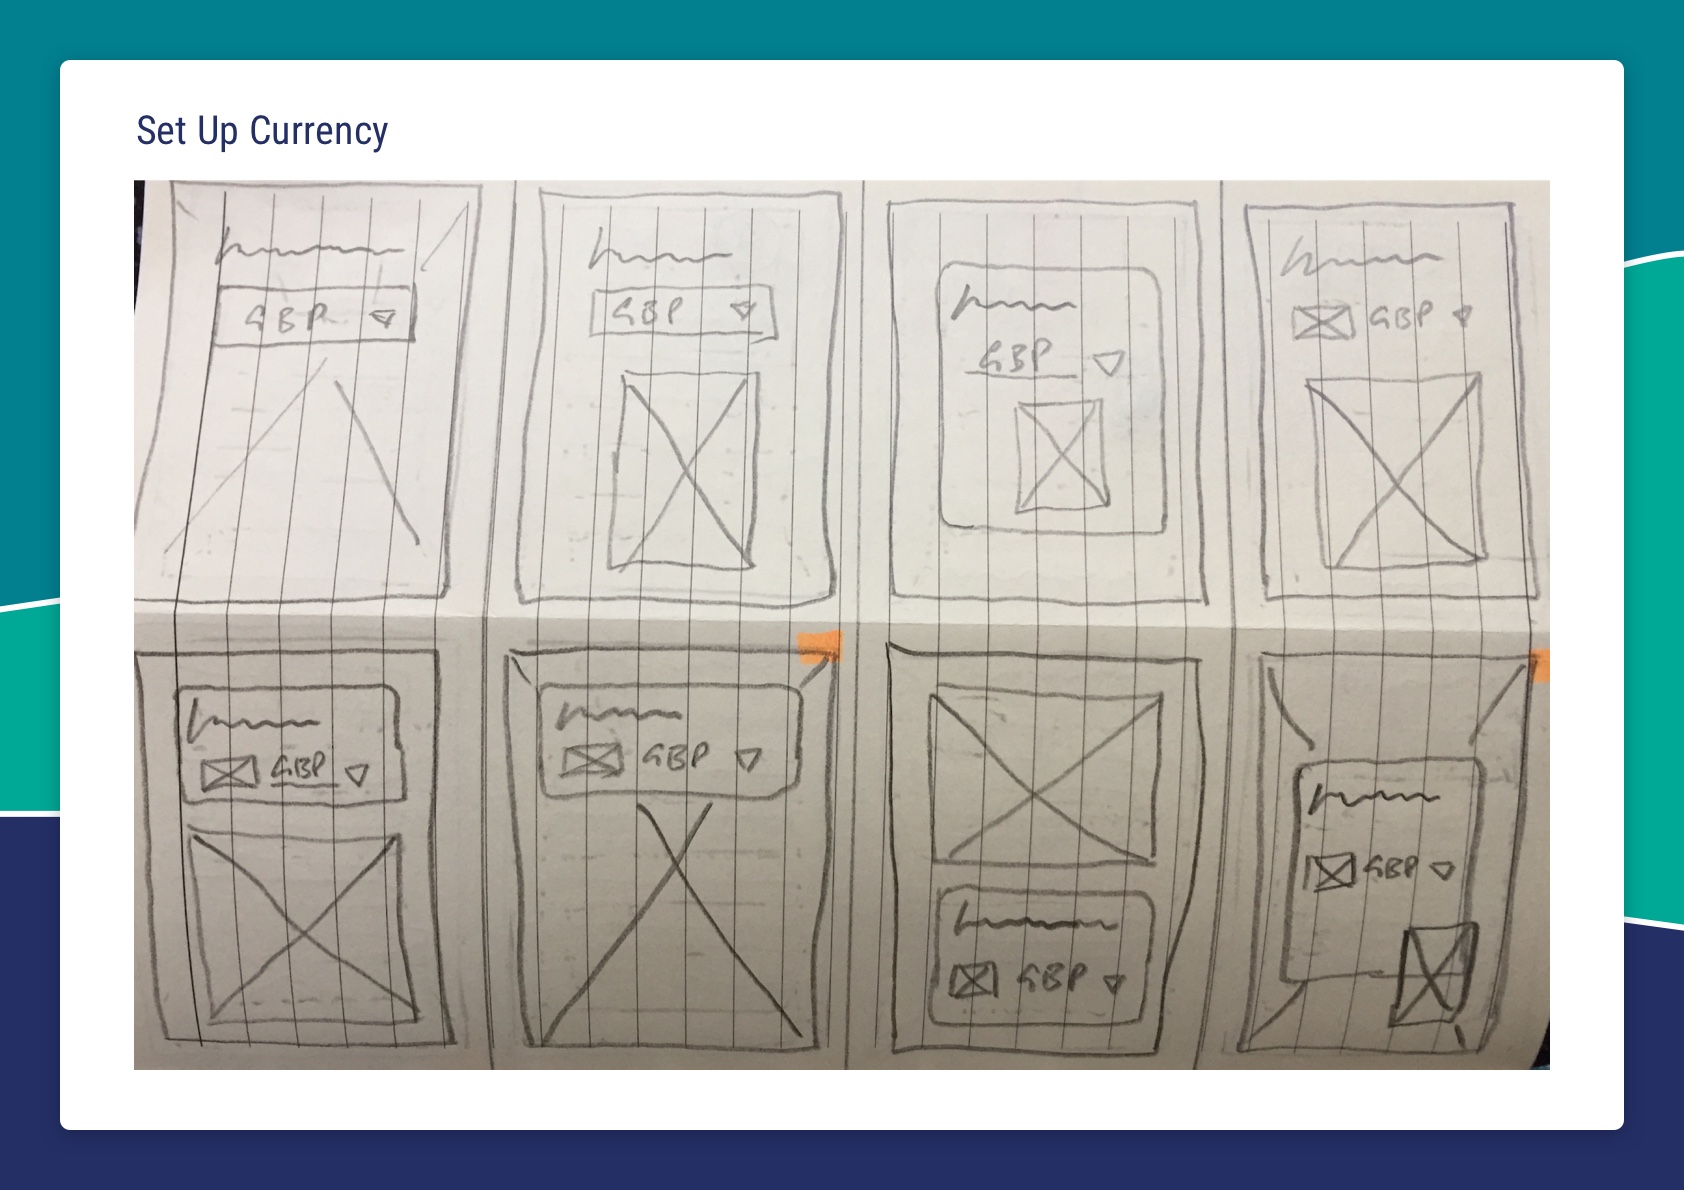 Set Up Currency
GBP
GBP
GBP
GBP
GBP
GBP
GBP
GBP